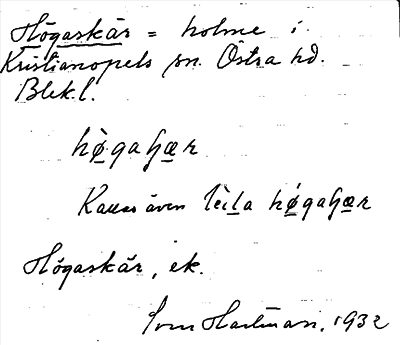 Högaskär = holme i
Kristianopels sn. Östra hd.
Blekl.
hø̀gaʃær
Kallas även lìlla hǿgaʃær
Högaskär, ek.
Hartman, 1932